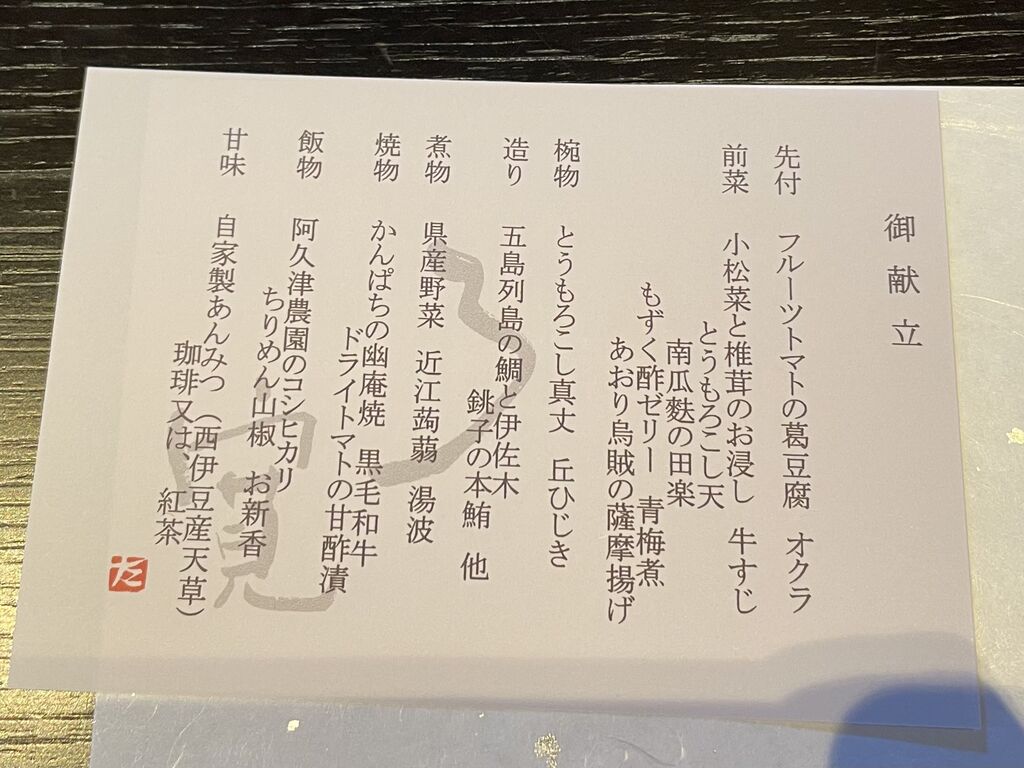 御献立
先付　フルーツトマトの葛豆腐　オクラ
前菜　小松菜と椎茸のお浸し　牛すじ
とうもろこし天
南瓜麩の田楽
もずく酢ゼリー　青梅煮
あおり烏賊の薩摩揚げ
椀物　とうもろこし真丈　丘ひじき
造り　五島列島の鯛と伊佐木
銚子の本鮪　他
煮物　県産野菜　近江蒟蒻　湯波
焼物　かんぱちの幽庵焼　黒毛和牛
ドライトマトの甘酢漬
飯物　阿久津農園のコシヒカリ
ちりめん山椒　お新香
甘味　自家製あんみつ（西伊豆産天草）
珈琲又は、紅茶